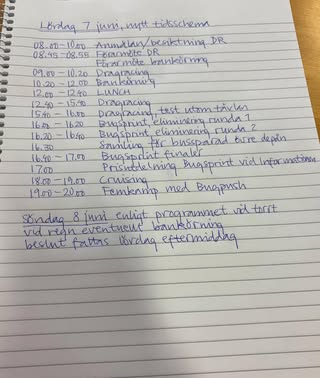 Lördag 7 juni, nytt tidsschema
08.00-10.00 Anmälan/besiktning DR
08.45-08.55 Förarmöte DR
Förarmöte bankörning
09.00-10.20 Dragracing
10.20-12.00 Bankörning
12.00-12.40 LUNCH
12.40-15.40 Dragracing
15.40-16.00 Dragracing, test utom tävlan
16.00-16.20 Bugsprint, eliminering runda 1
16.20-16.40 Bugsprint, eliminering runda 2
16.30 Samling för bussparad övre depån
16.40-17.00 Bugsprint finaler
17.00 Prisutdelning Bugsprint vid Informationen
18.00-19.00 Cruising
19.00-20.00 Femkamp med Bugpush
Söndag 8 juni enligt programmet vid torrt
vid regn eventuell bankörning
beslut fattas lördag eftermiddag